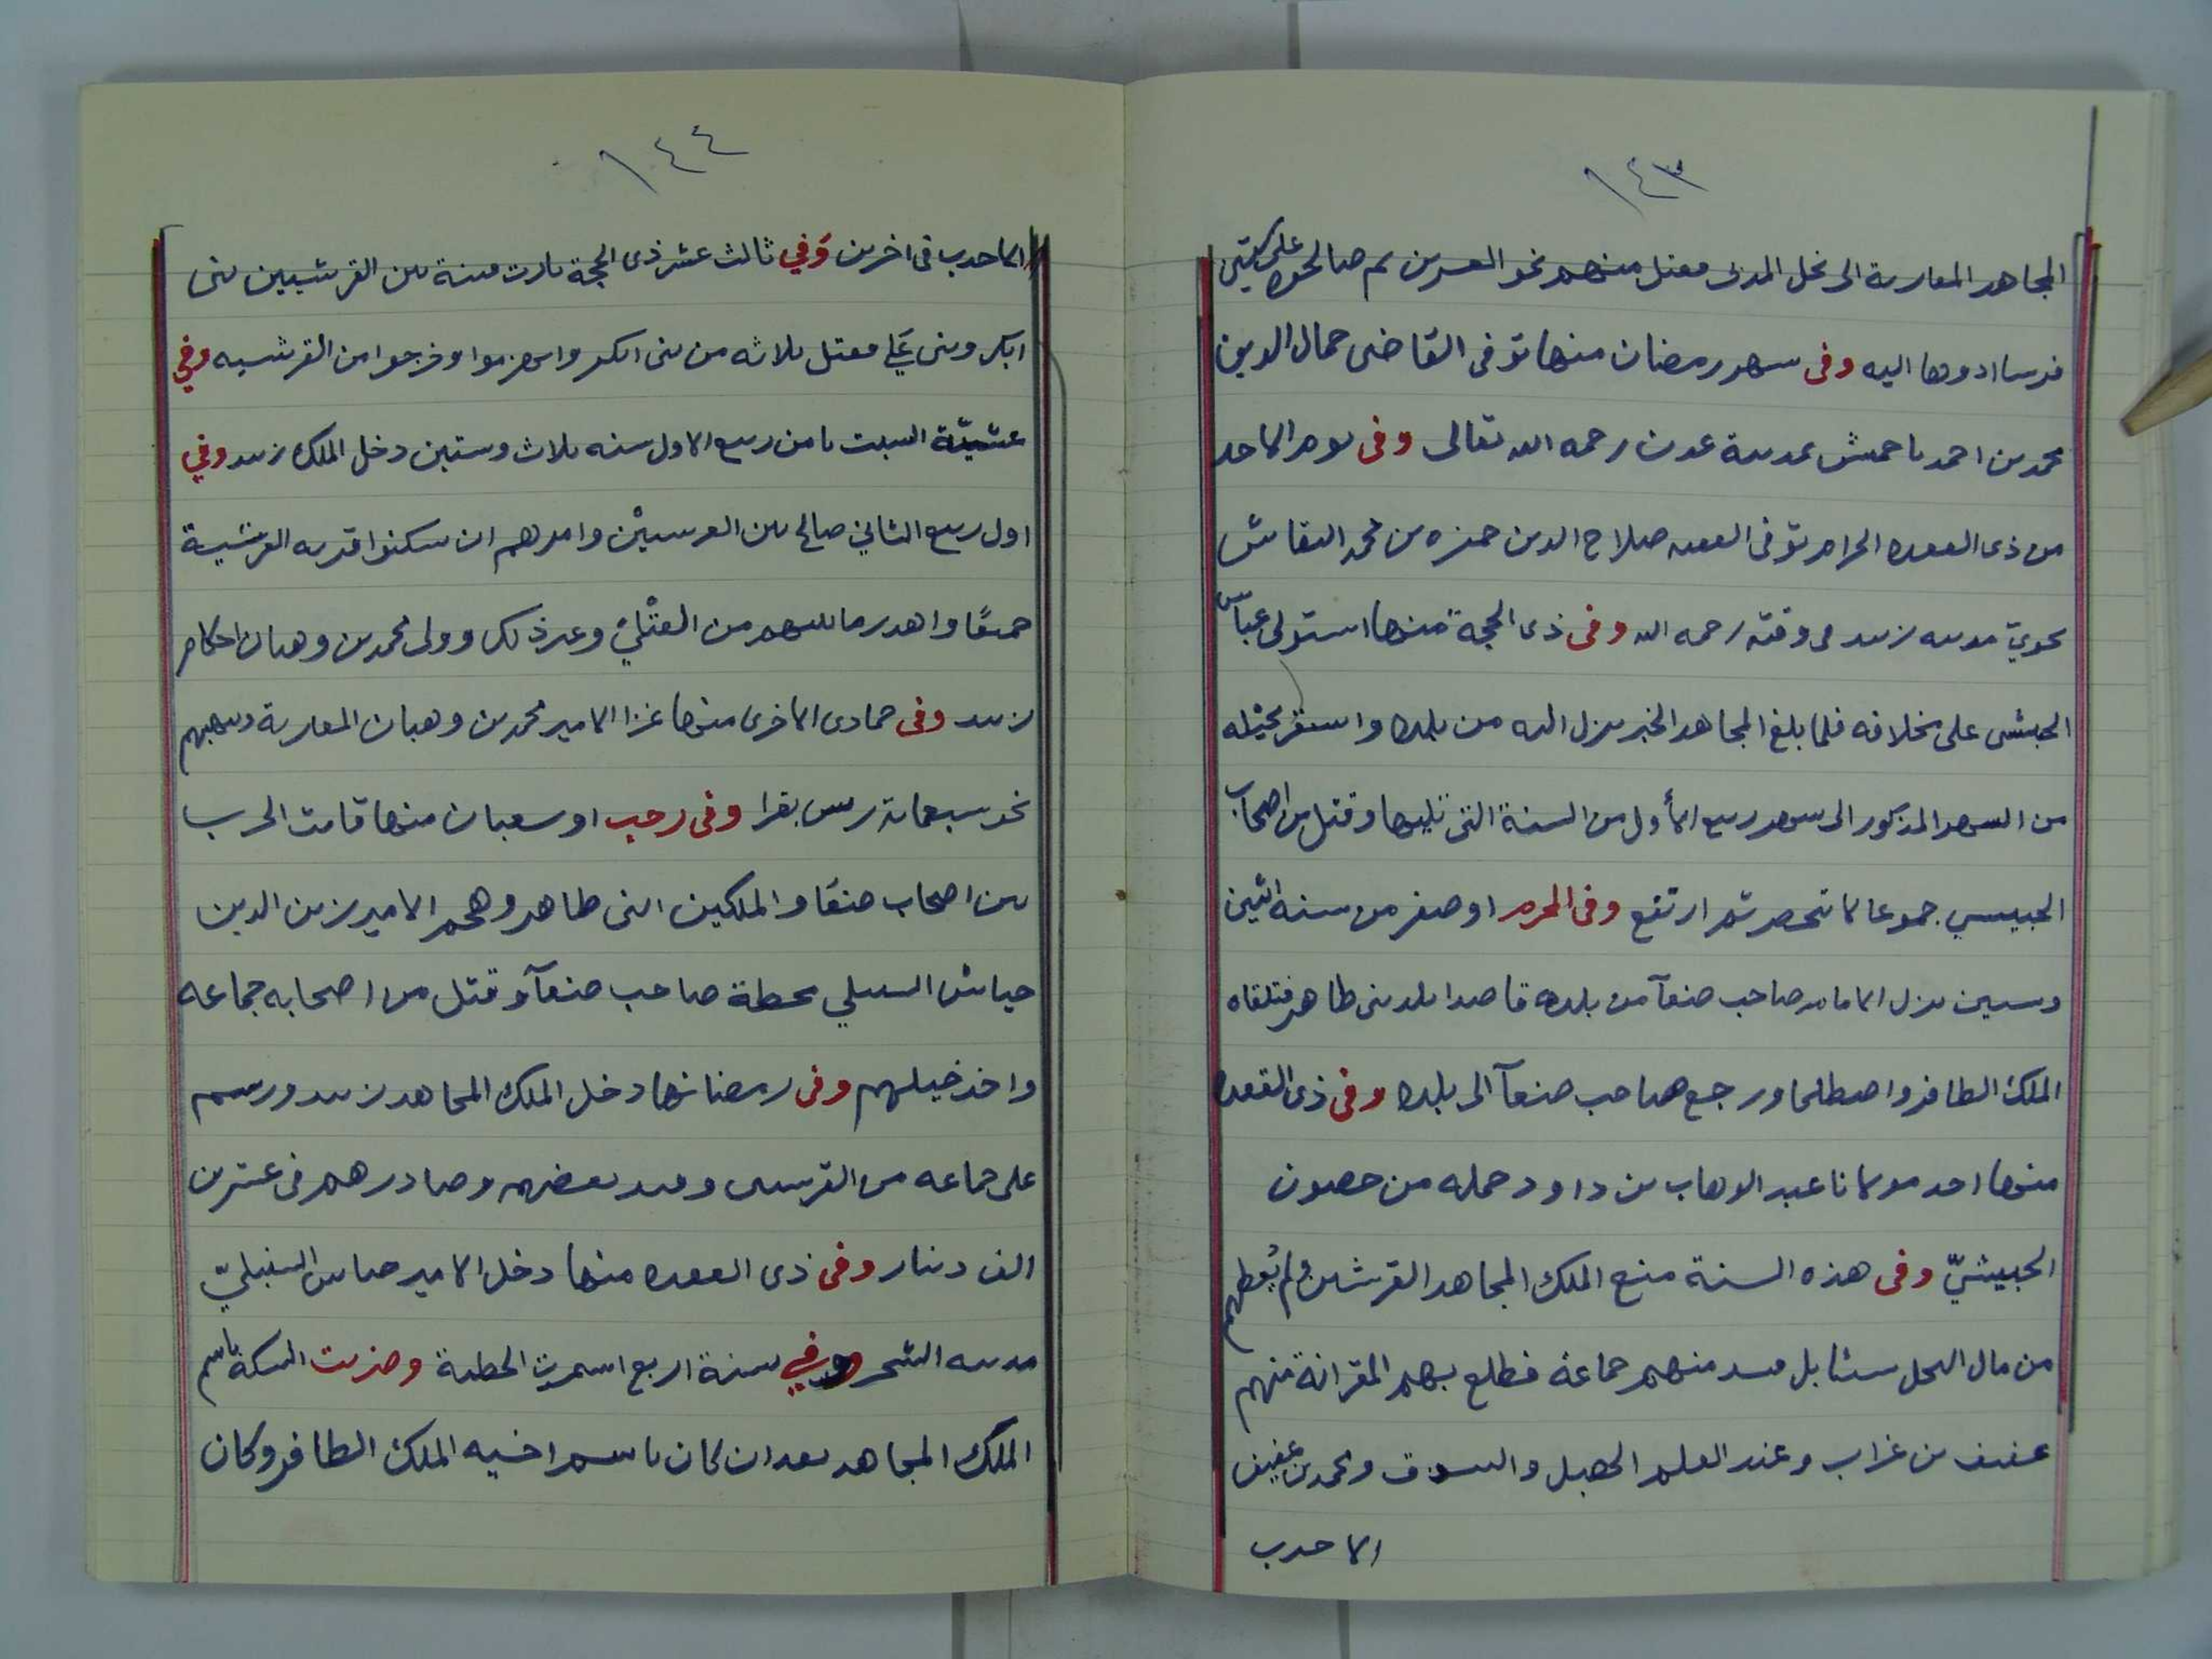 ١٤٣
المجاهد المعاربة الى نخل المدنى فقتل منهم نحو العسرين ثم صالحوه على كتبتى
فرسا ادوها اليه وفى سهر رمضان منها توفى القاضى جمال الدين
محمد بن احمد با حمش بمدينة عدن رحمه الله تعالى وفى يوم الاحد
من ذى القعده الحرام توفى الفقيه صلاح الدين حمزه بن محمد النقاش
نحويّ مدينه زبيد فى وقته رحمه الله وفى ذى الحجة منها استولى عباس
الحبشى على مخلافه فلما بلغ المجاهد الخبر نزل اليه من بلده واستقر بحيله
من السهر المذكور الى سهر ربيع الأول من السنة التى تليها وقتل من اصحاب
الحبيسي جموعا لا تحصر ثم ارتفع وفى المحرم او صفر من سنه اثنين
وستين نزل الامام صاحب صنعآ من بلده قاصدا بلد بنى طاهر فتلقاه
الملك الظافر واصطلحا ورجع صاحب صنعآ الى بلده وفى ذى القعده
منها احد مولانا عبد الوهاب بن داود حمله من حصون
الحبيشيّ وفى هذه السنة منع الملك المجاهد القرشين ولم يُعطهم
من مال النخل سيئا بل قيد منهم جماعة فطلع بهم المقرانة منهم
عفيف بن غراب وعند العلم الحصل والسوق ومحمد بن عفيف
الاحدب
١٤٤
الاحدب فى اخرين وَفي ثالث عشر ذى الحجة ثارت فتنة بين القرشيين بنى
ابكر وبنى عَلي فقتل ثلاثه من بنى ابكر وانهزموا وخرجوا من القرشيه وفي
عشيّة السبت ثامن ربيع الاول سنه ثلاث وستين دخل الملك زبيد وفي
اول ربيع الثاني صالح بين القرسيين وامرهم ان سكنوا قريه القرشية
جميعًا واهدر ما بينهم من القتْلى وغير ذلك وولى محمد بن وهبان احكام
زبيد وفى جمادى الاخرى منها غزا الامير محمد بن وهبان المعاربة ونهبهم
نحو سبعمائة رس بقرا وفى رجب او سعبان منها قامت الحرب
بين اصحاب صنعَا والملكين ابنى طاهر وهجم الامير زين الدين
جياش السنبلي محطة صاحب صنعآ وقتل من اصحابه جماعه
واخذ خيلهم وفى رمضانها دخل الملك المجاهد زبيد ورسم
على جماعه من القرسيين وقيد بعضهم وصادرهم فى عشرين
الف دينار وفى ذى القعده منها دخل الامير جياش السنبليّ
مدينه الشحر وفي سنة اربع استمرت الخطبة وضربت السكة باسم
الملك المجاهد بعد ان كان باسم اخيه الملك الظافر وكان